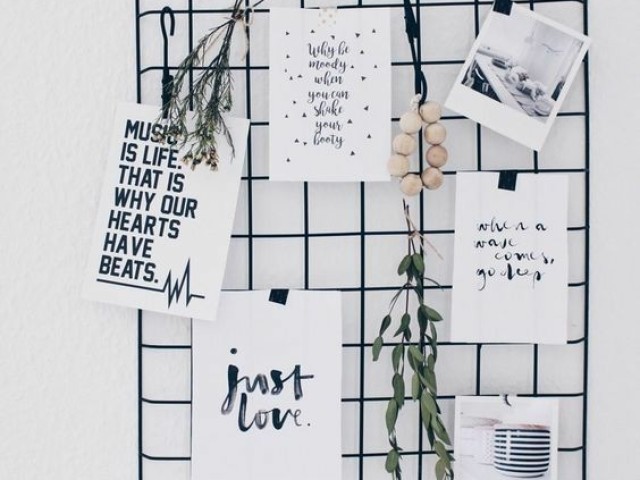 Why be
moody
when
you can
shake
your
booty
MUSIC
IS LIFE.
THAT IS
WHY OUR
HEARTS
HAVE
BEATS.
when a
wave
comes,
go deep
just
love.